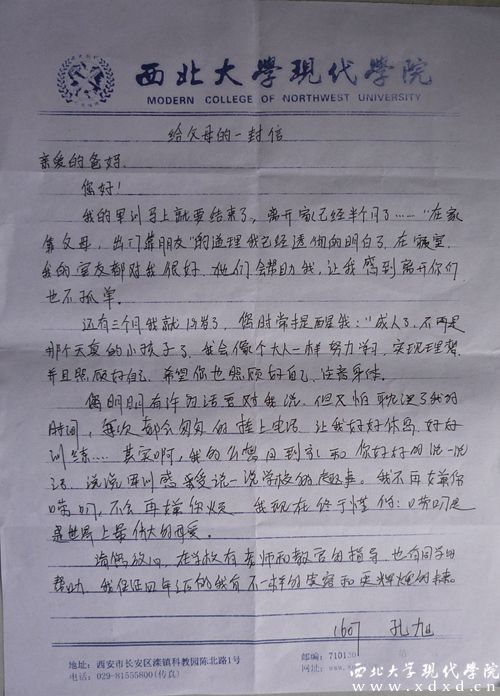 西北大學現代學院
MODERN COLLEGE OF NORTHWEST UNIVERSITY
给父母的一封信
亲爱的爸妈.
您好!
我的军训马上就要结束了, 离开家已经半个月了……"在家
靠父母, 出门靠朋友"的道理我已经透彻的明白了. 在寝室
我的室友都对我很好. 她们会帮助我, 让我感到离开你们
也不孤单.
还有三个月我就18岁了, 您时常提醒我: "成人了, 不再是
那个天真的小孩子了, 我会像个大人一样努力学习, 实现理想
并且照顾好自己. 希望您也照顾好自己. 注意身体.
您明明有许多话要对我说. 但又怕耽误了我的
时间, 每次都会匆匆的挂上电话. 让我好好休息, 好好
训练.... 其实啊, 我多么想回到家和你好好的说一说
话. 说说军训感受说一说学校的趣事. 我不再嫌你
唠叨, 不会再嫌你烦 我现在终于懂得: 唠叨是
是世界上最伟大的母爱.
请您放心, 在学校有老师和教官的指导 也有同学的
帮助. 我保证四年后的我有不一样的面容和更辉煌的未来.
1607 孔旭
地址: 西安市长安区滦镇科教园陈北路1号
电话: 029-81555800(传真)
邮编: 710130
网址: www.
西北大学现代学院
www.xdxd.cn